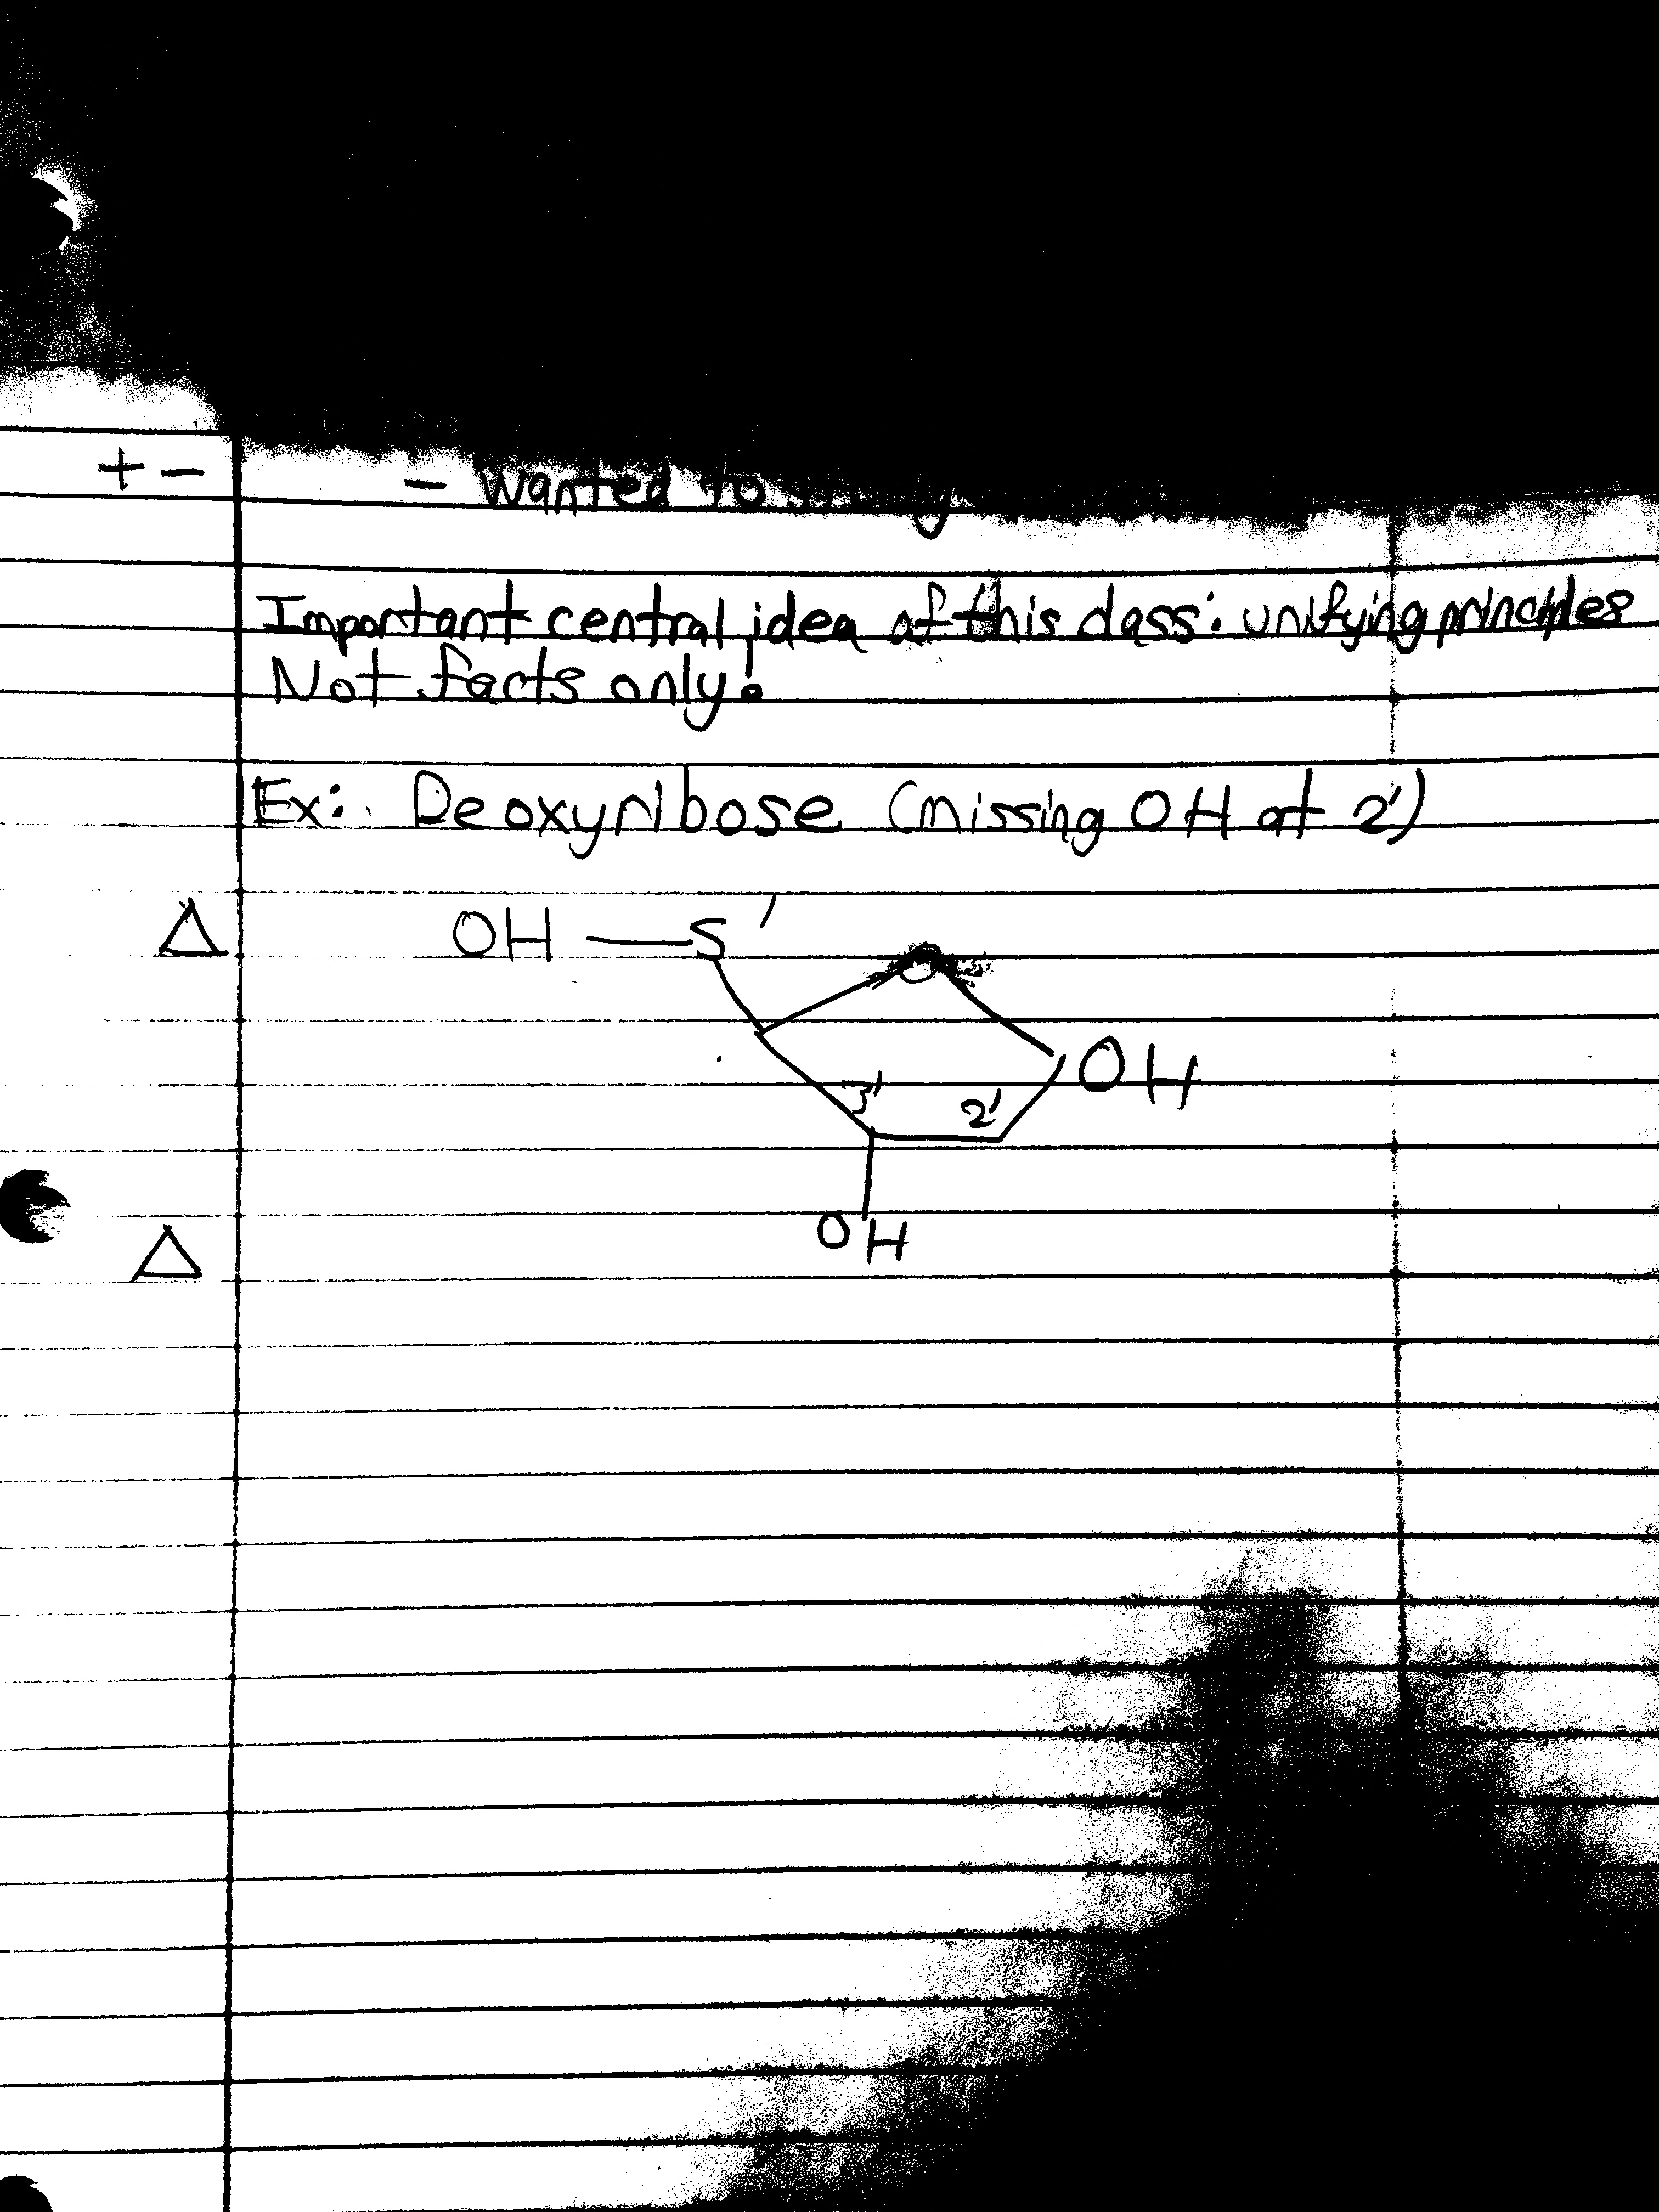 + -
- Wanted to study
Important central idea of this class: unifying principles
Not facts only!
Ex: Deoxyribose (missing OH at 2')
OH 5'
O
OH
3' 2'
OH